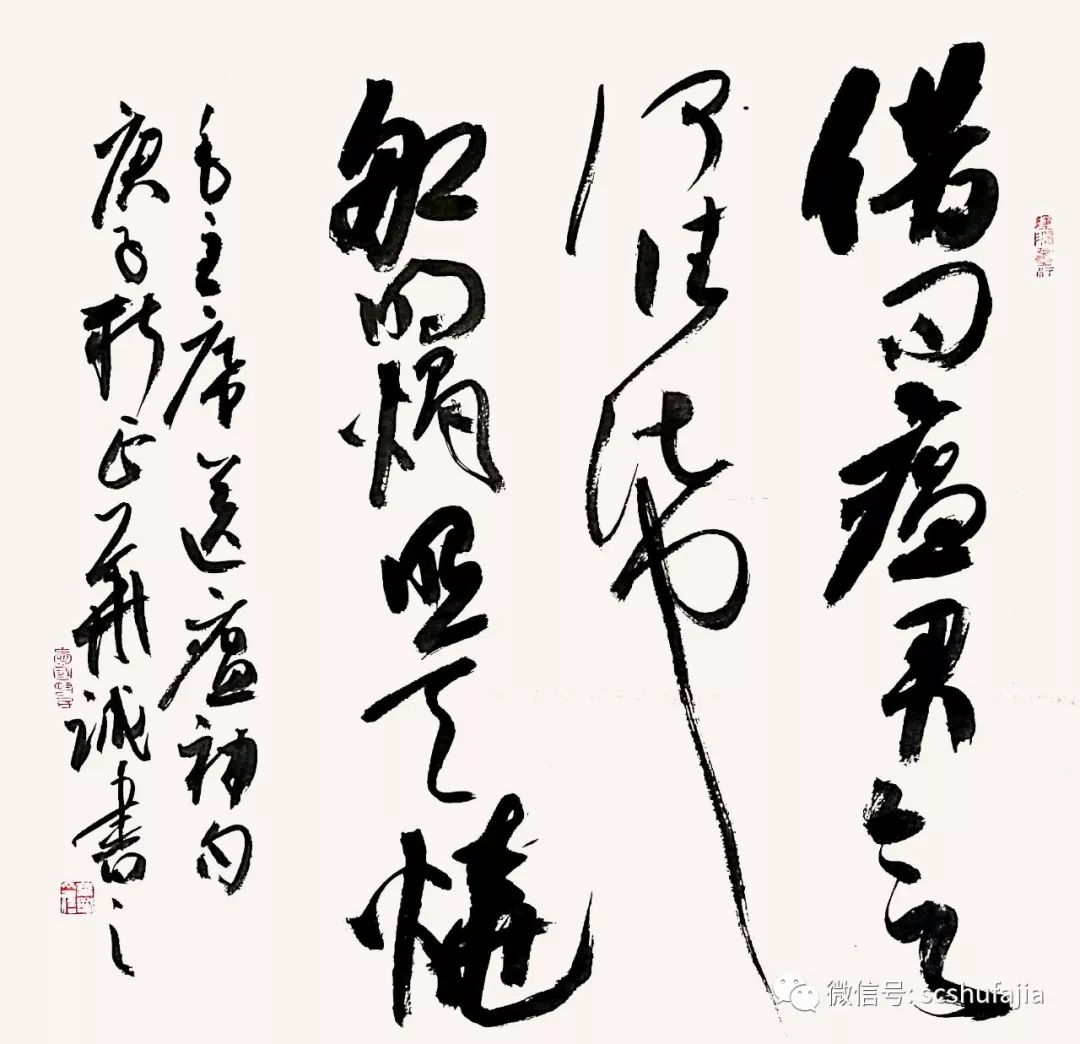 借問瘟君欲
何往帋
船明燭照天燒
毛主席送瘟神句
庚子新正華誠書之
微信号: scshufajia